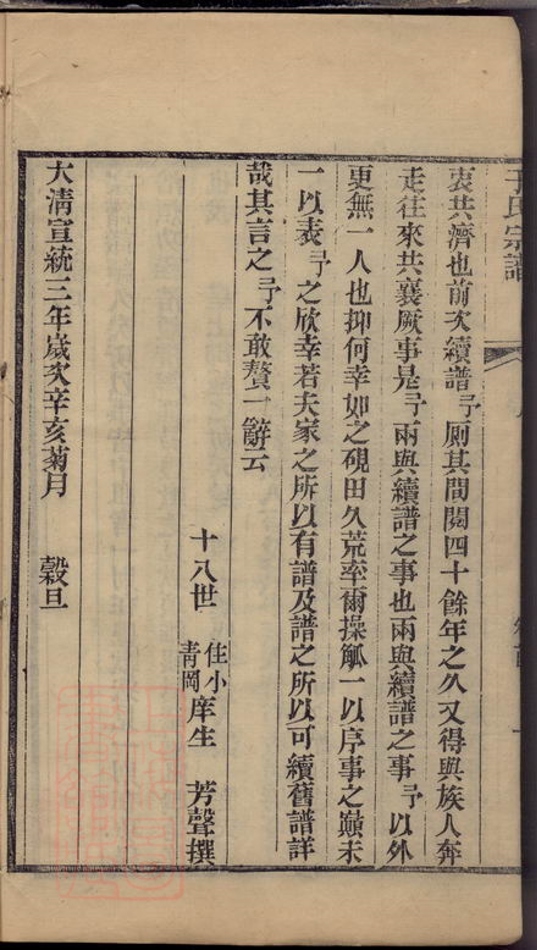 于氏宗譜
衷共濟也前次續譜予厠其間閱四十餘年之久又得與族人奔
走往來共襄厥事是予兩與續譜之事也兩與續譜之事予以外
更無一人也抑何幸如之硯田久荒率爾操觚一以序事之巔末
一以表予之欣幸若夫家之所以有譜及譜之所以可續舊譜詳
哉其言之予不敢贅一辭云
十八世 住小青岡庠生 芳聲撰
大清宣統三年歲次辛亥菊月 穀旦